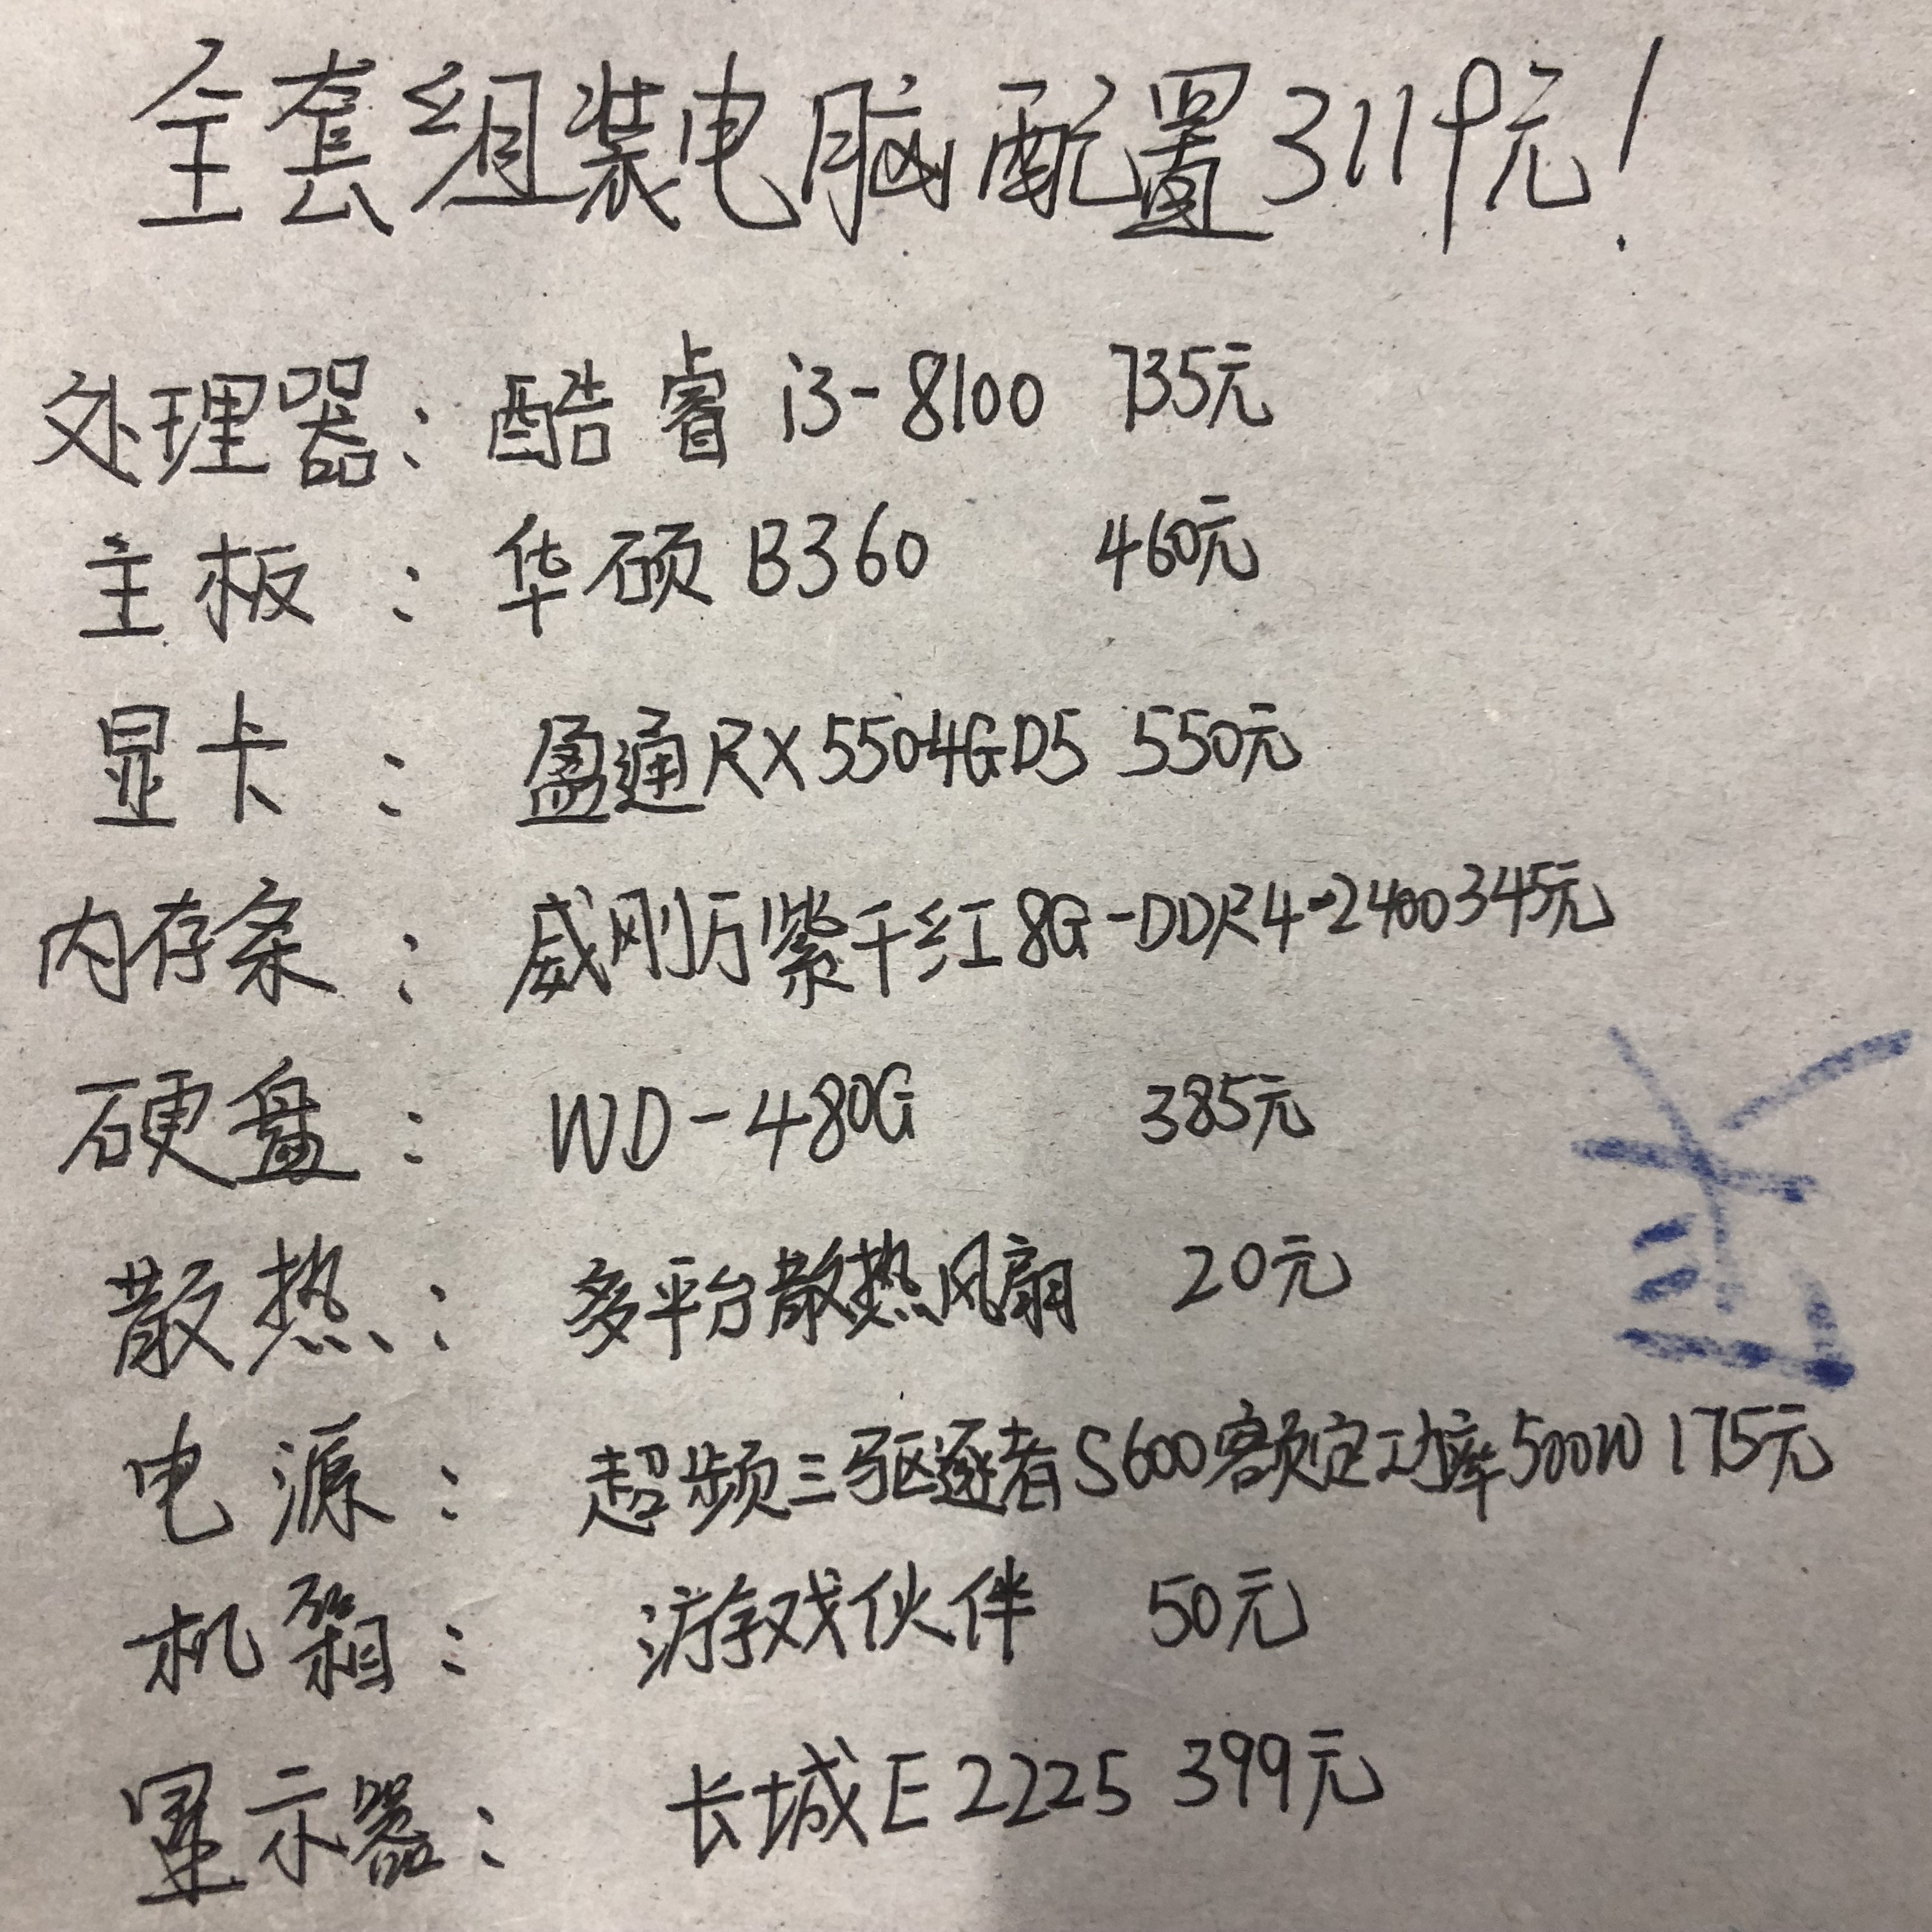 全套组装电脑配置3119元!
处理器: 酷睿 i3-8100 735元
主板: 华硕 B360 460元
显卡: 盈通RX5504GD5 550元
内存条: 威刚万紫千红8G-DDR4-2400 345元
硬盘: WD-480G 385元
散热: 多平台散热风扇 20元
电源: 超频三驱逐者S600额定功率500W 175元
机箱: 游戏伙伴 50元
显示器: 长城E2225 399元